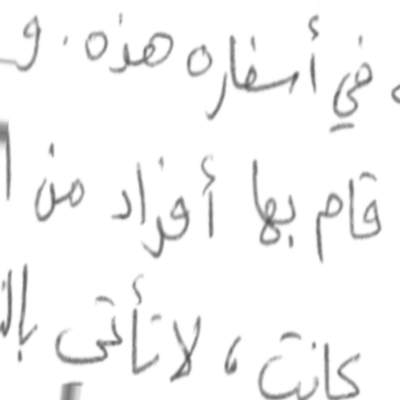 في أسفاره هذه. و
قام بها أفراد من
كانت، لا تأتي بال